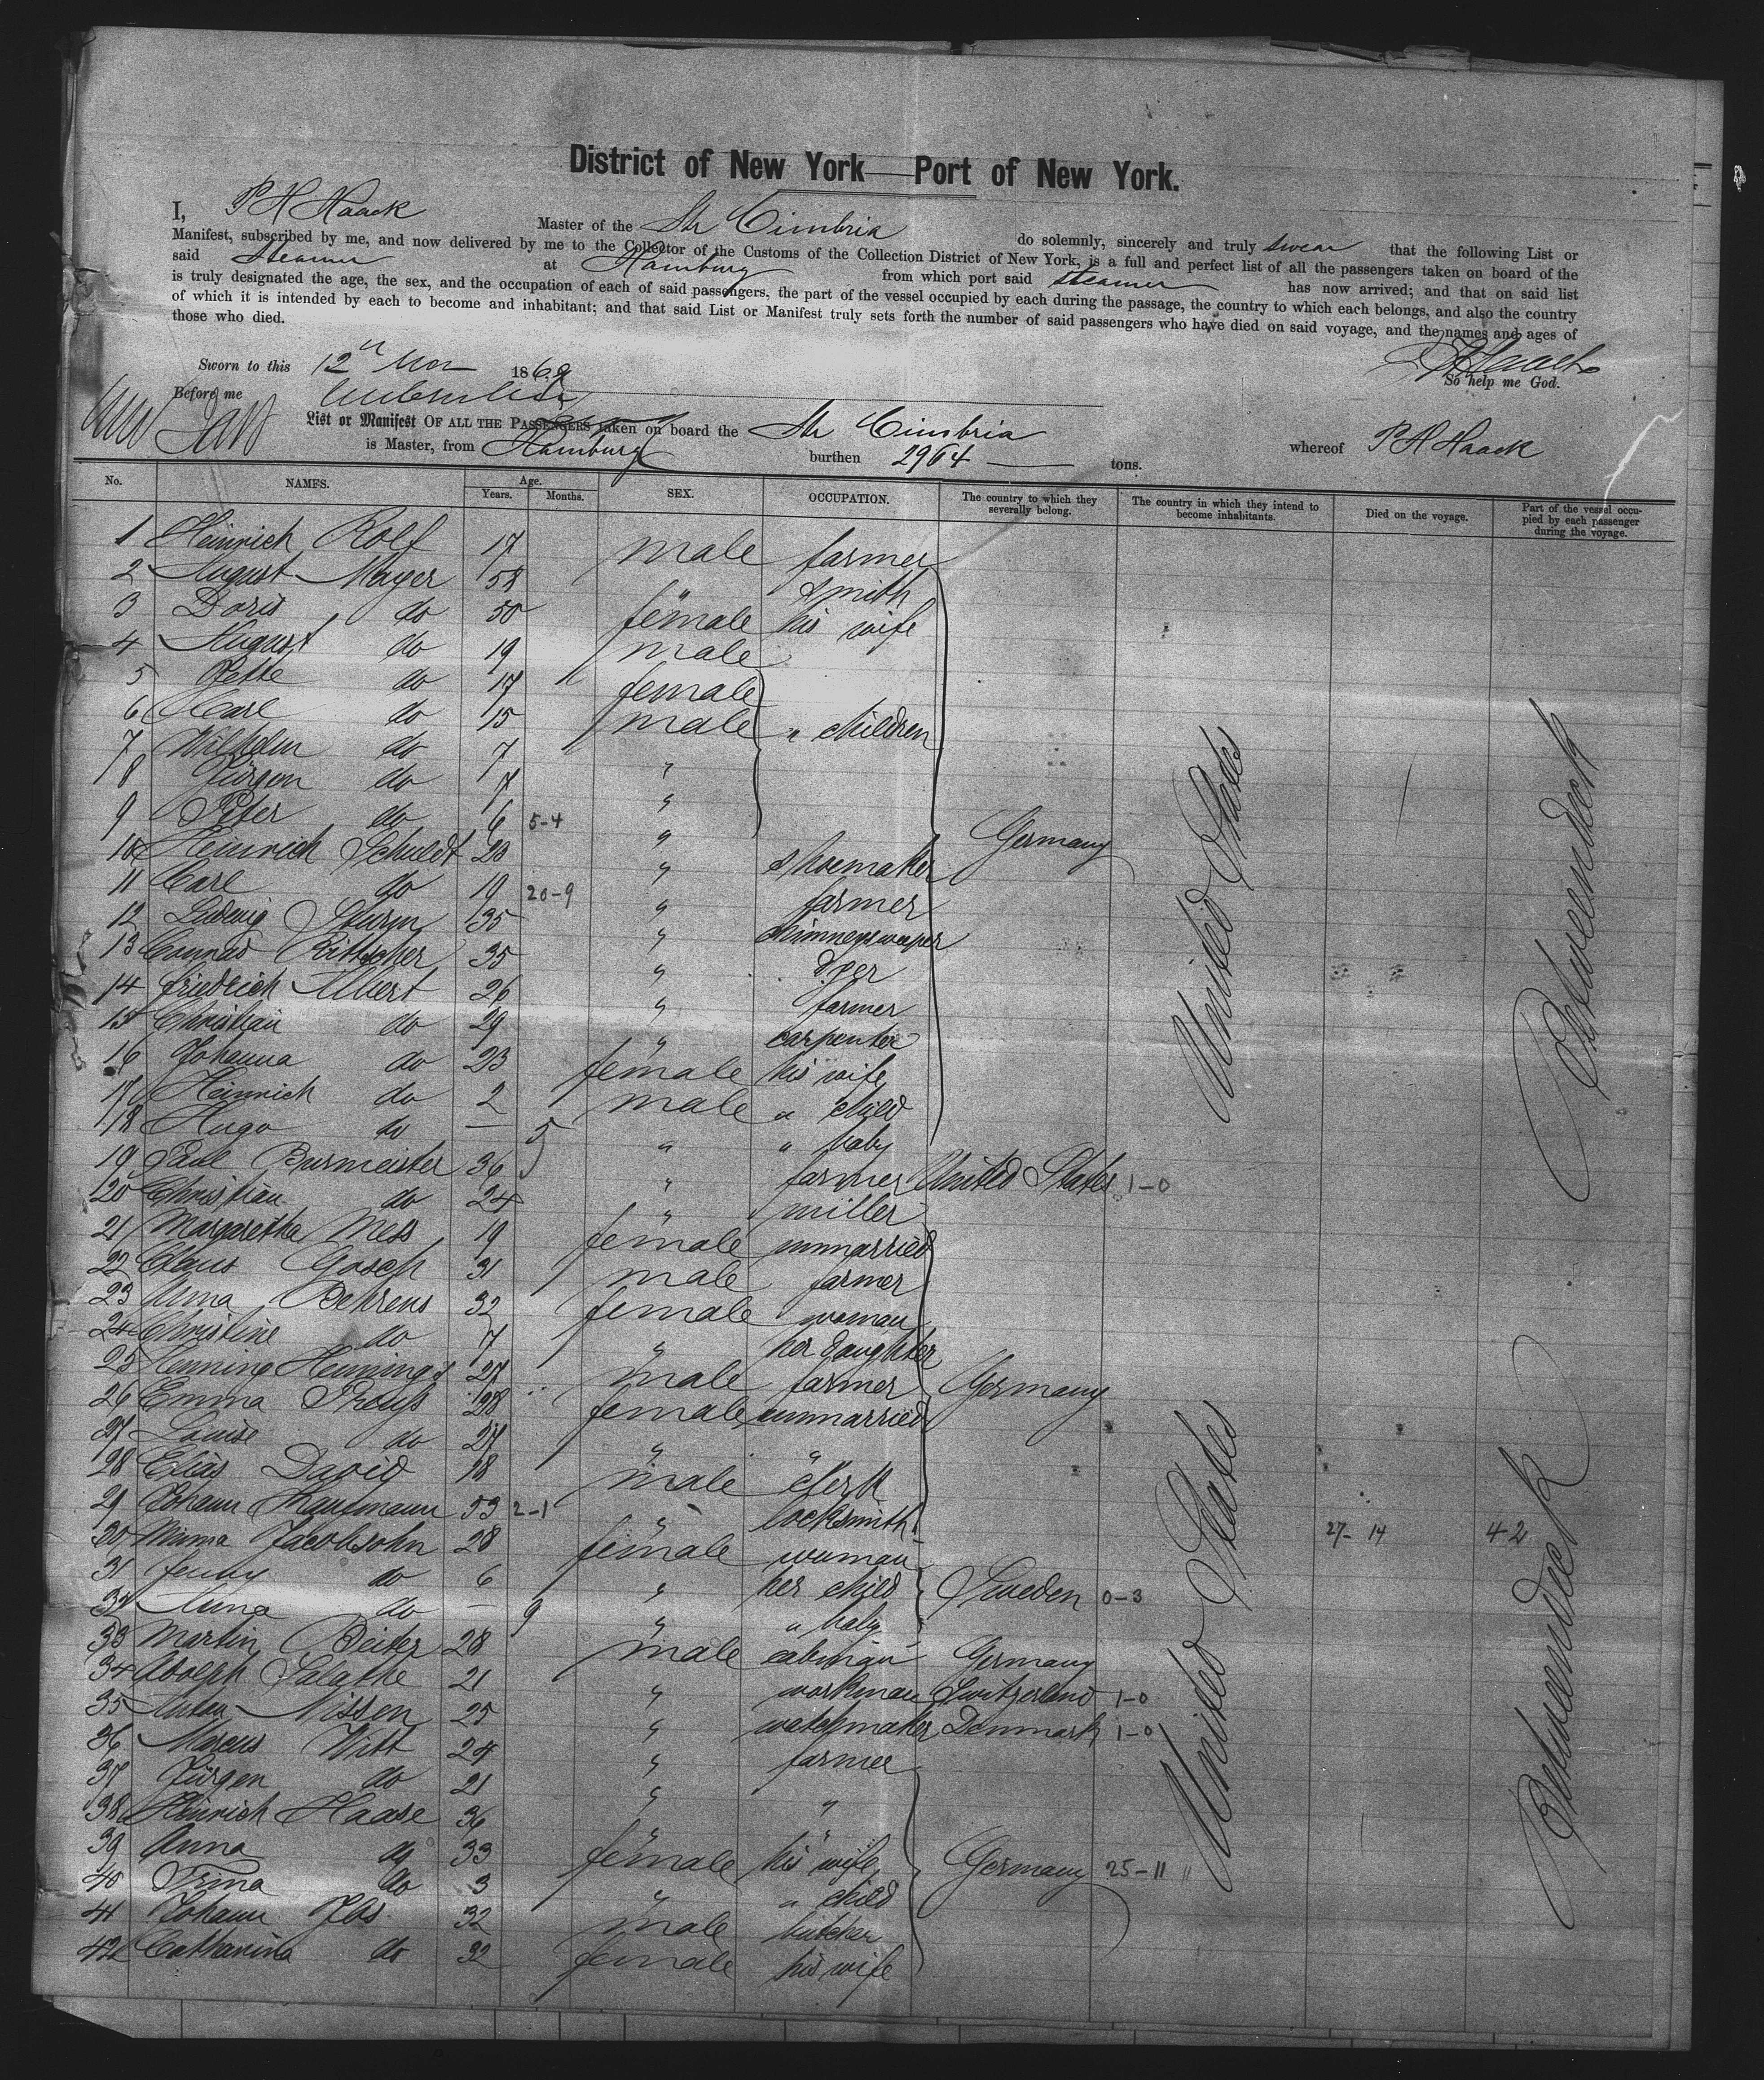 District of New York—Port of New York.
I, P H Haack Master of the Str Cimbria do solemnly, sincerely and truly swear that the following List or
Manifest, subscribed by me, and now delivered by me to the Collector of the Customs of the Collection District of New York, is a full and perfect list of all the passengers taken on board of the
said Steamer at Hamburg from which port said steamer has now arrived; and that on said list
is truly designated the age, the sex, and the occupation of each of said passengers, the part of the vessel occupied by each during the passage, the country to which each belongs, and also the country
of which it is intended by each to become and inhabitant; and that said List or Manifest truly sets forth the number of said passengers who have died on said voyage, and the names and ages of
those who died.
P H Haack
Sworn to this 12" 1869 So help me God.
Before me
List or Manifest OF ALL THE PASSENGERS taken on board the Str Cimbria whereof P H Haack
is Master, from Hamburg burthen 2964 tons.
No. NAMES. Age. Years. Months. SEX. OCCUPATION. The country to which they severally belong. The country in which they intend to become inhabitants. Died on the voyage. Part of the vessel occupied by each passenger during the voyage.
1 Heinrich Rolf 17 male farmer
2 August Mayer 58 " smith
3 Doris do 50 female his wife
4 August do 19 male
5 Jette do 17 female
6 Carl do 15 male " children
7 Wilhelm do 7 "
8 Jürgen do 7 "
9 Peter do 6 5-4 " Germany
10 Heinrich Schuldt 23 " shoemaker
11 Carl do 19 20-9 " farmer
12 Ludwig Sturm 35 " chimneysweeper
13 Conrad Rittscher 35 "
14 Friedrich Albert 26 " farmer
15 Christian do 29 " carpenter
16 Johanna do 23 female his wife
17 Heinrich do 2 male " child
18 Hugo do — 5 " " baby
19 Paul Burmeister 36 " farmer United States 1-0
20 Christian do 24 " miller
21 Margaretha Mess 19 female unmarried
22 Claus Gosch 31 male farmer
23 Anna Behrens 32 female woman
24 Christine do 7 " her daughter
25 Henning Hennings 27 male farmer Germany
26 Emma Preuß 28 female unmarried
27 Louise do 27 " "
28 Elias David 18 male clerk
29 Johann Kaufmann 53 2-1 " locksmith 27- 14 42
30 Minna Jacobsohn 28 female woman
31 Jenny do 6 " her child Sweden 0-3
32 Anna do — 9 " " baby
33 Martin Reiter 28 male Germany
34 Adolph Salathe 21 " workman Switzerland 1-0
35 Anton Nissen 25 " watchmaker Denmark 1-0
36 Marcus Witt 24 " farmer
37 Jürgen do 21 " "
38 Heinrich Haase 36 " "
39 Anna do 33 female his wife Germany 25-11
40 Trina do 3 " " child
41 Johann Ibs 32 male butcher
42 Catharina do 32 female his wife
United States
United States
Betweendeck
Betweendeck